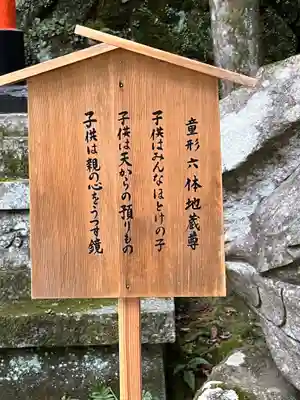 童形六体地蔵尊
子供はみんなほとけの子
子供は天からの預りもの
子供は親の心をうつす鏡